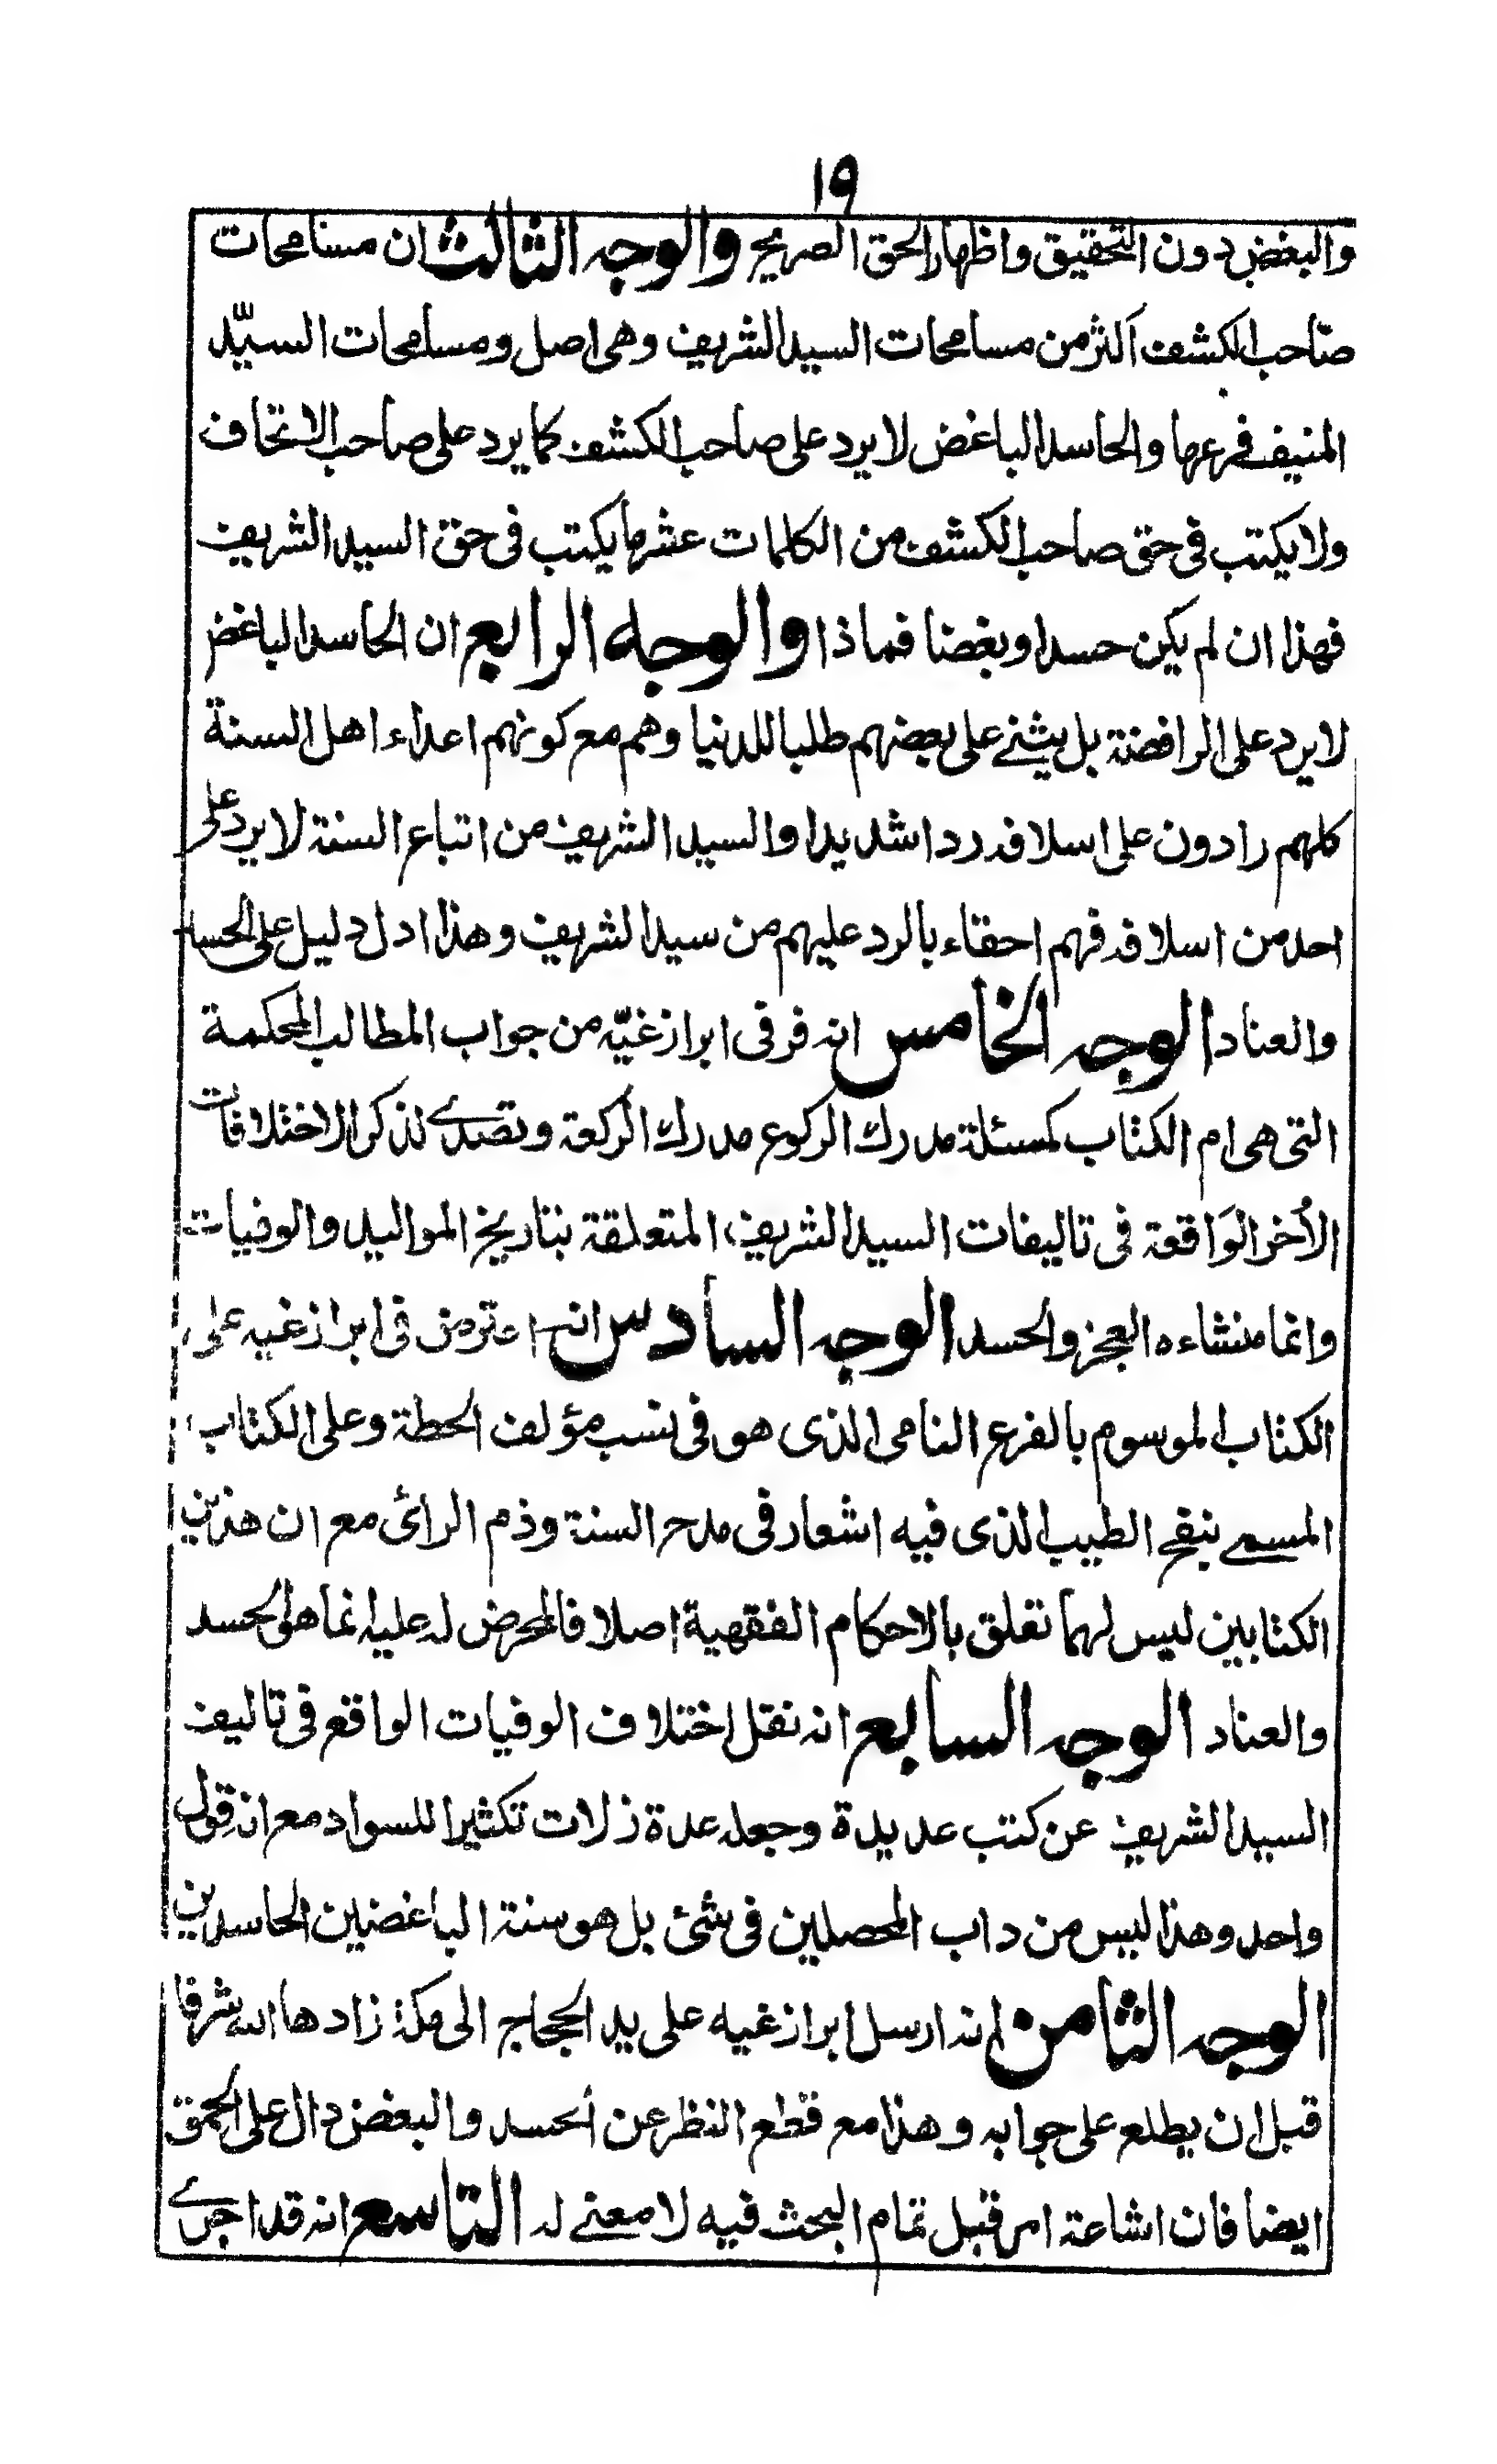 ١٩
والبغض دون التحقيق واظهار الحق الصريح والوجه الثالث ان مسامحات
صاحب الكشف اكثر من مسامحات السيد الشريف وهى اصل ومسامحات السيّد
المنيف فرعها والحاسد الباغض لا يرد على صاحب الكشف كما يرد على صاحب الاتحاف
ولا يكتب فى حق صاحب الكشف من الكلمات عشر ما يكتب فى حق السيد الشريف
فهذا ان لم يكن حسدا وبغضا فماذا والوجه الرابع ان الحاسد الباغض
لا يرد على الرافضة بل يثنے على بعضهم طلبا للدنيا وهم مع كونهم اعداء اهل السنة
كلهم رادون على اسلافه ردا شديدا والسيد الشريف من اتباع السنة لا يرد على
احد من اسلافه فهم احقاء بالرد عليهم من سيد الشريف وهذا ادل دليل على الحسد
والعناد الوجه الخامس انه فر فى ابراز غيّه من جواب المطالب المحكمة
التى هى ام الكتاب كمسئلة مدرك الركوع مدرك الركعة وتصدے لذكر الاختلافات
الأخر الوَاقعة فى تاليفات السيد الشريف المتعلقة بتاريخ المواليد والوفيات
وانما منشاءه العجز والحسد الوجه السادس انه اعترض فى ابراز غيه على
الكتاب الموسوم بالفرع النامى الذى هو فى نسب مؤلف الحطة وعلى الكتاب
المسمے بنفح الطيب الذى فيه اشعار فى مدح السنة وذم الرائ مع ان هذين
الكتابين ليس لهما تعلق بالاحكام الفقهية اصلا فالمحرض له عليه انما هو الحسد
والعناد الوجه السابع انه نقل اختلاف الوفيات الواقع فى تاليف
السيد الشريف عن كتب عديدة وجعله عدة زلات تكثيرا للسواد مع انه قول
واحد وهذا ليس من داب المحصلين فى شئ بل هو سنة الباغضين الحاسدين
الوجه الثامن انه ارسل ابراز غيه على يد الحجاج الى مكة زادها الله شرفا
قبل ان يطلع على جوابه وهذا مع قطع النظر عن الحسد والبغض دال على الحمق
ايضا فان اشاعة امر قبل تمام البحث فيه لا معنے له التاسع انه قد اجرے